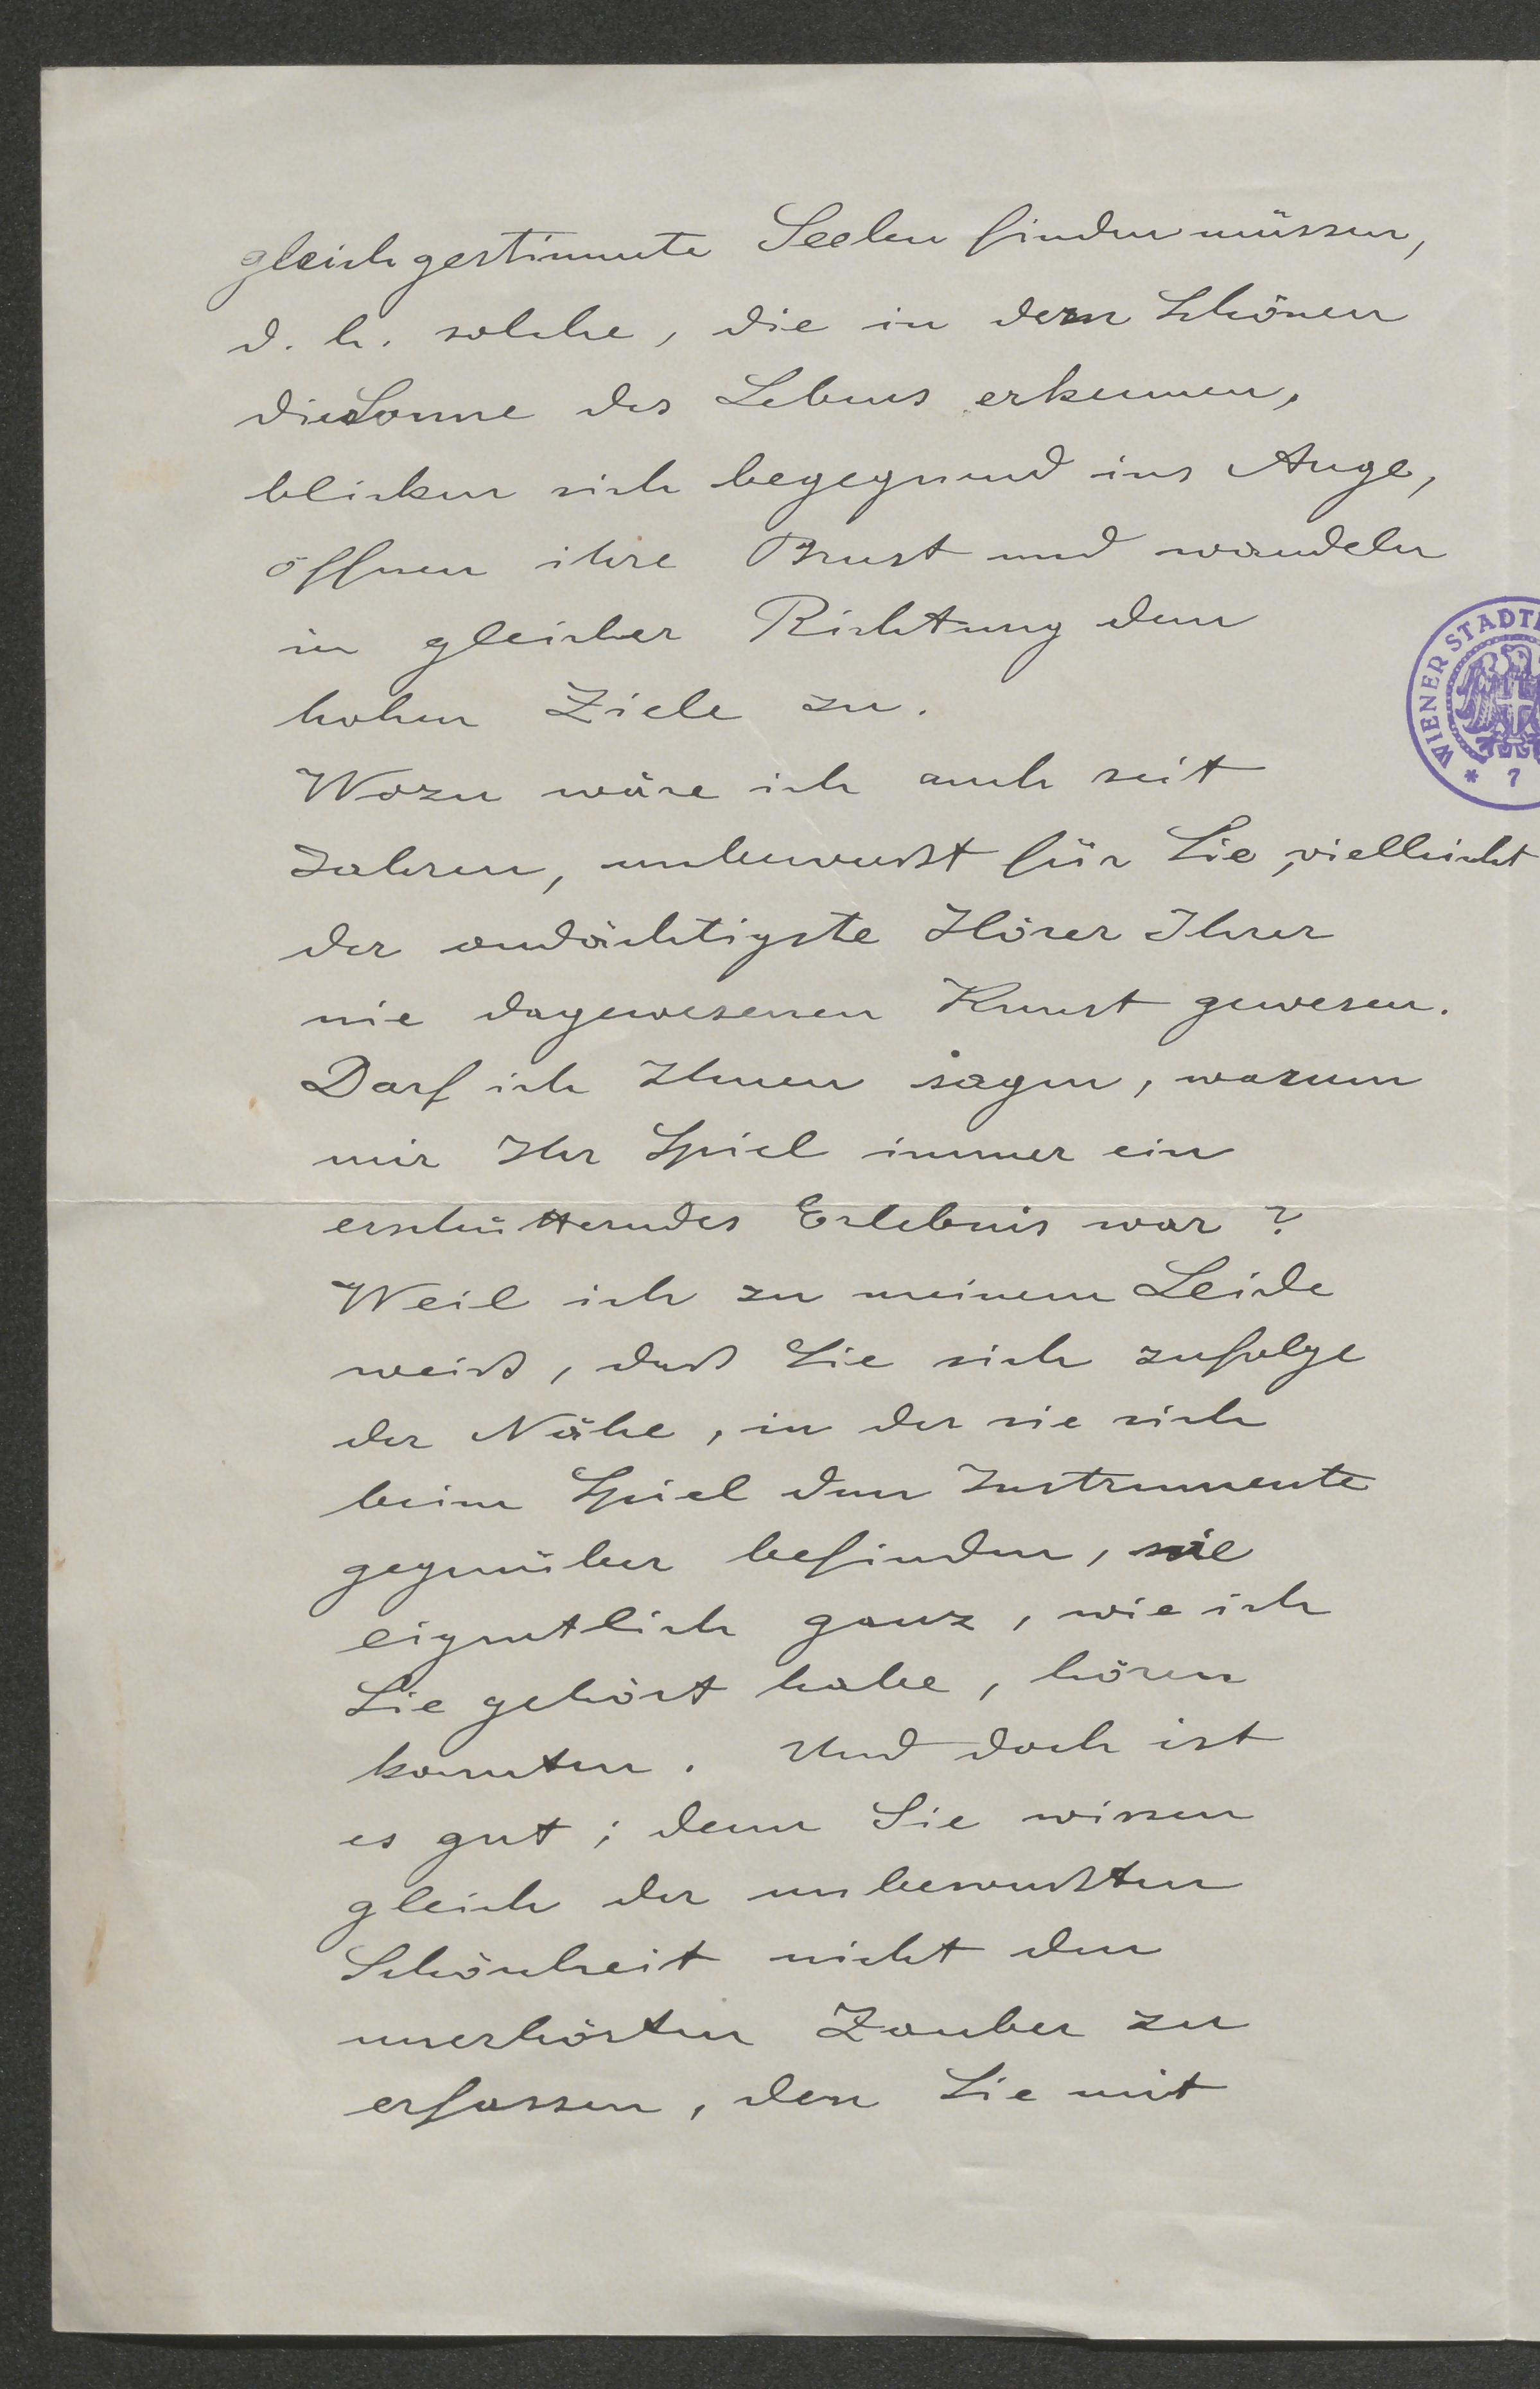 gleichgestimmte Seelen finden müssen,
d. h. solche, die in dem Schönen
die Sonne des Lebens erkennen,
blicken sich begegnend ins Auge,
öffnen ihre Brust und wandeln
in gleicher Richtung dem
hohen Ziele zu.
Wozu wäre ich auch seit
Jahren, unbewußt für Sie, vielleicht
der andächtigste Hörer Ihrer
nie dagewesenen Kunst gewesen.
Darf ich Ihnen sagen, warum
mir Ihr Spiel immer ein
erschütterndes Erlebnis war?
Weil ich zu meinem Leide
weiß, daß Sie sich zufolge
der Nähe, in der sie sich
beim Spiel dem Instrumente
gegenüber befinden, nie
eigentlich ganz, wie ich
Sie gehört habe, hören
konnten. Und doch ist
es gut; denn Sie wissen
gleich der unbewußten
Schönheit nicht den
unerhörten Zauber zu
erfassen, den Sie mit
WIENER STADT
* 7